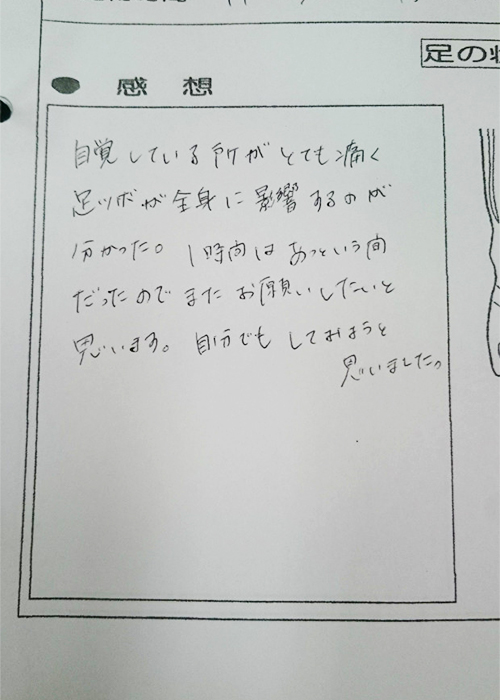 足の
● 感 想
自覚している所がとても痛く
足ツボが全身に影響するのが
分かった。1時間はあっという間
だったのでまたお願いしたいと
思います。自分でもしてみようと
思いました。